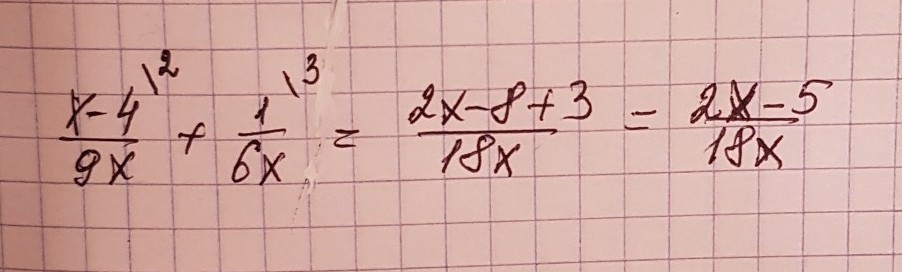 \frac{x-4^{\backslash 2}}{9x} + \frac{1^{\backslash 3}}{6x} = \frac{2x-8+3}{18x} = \frac{2x-5}{18x}